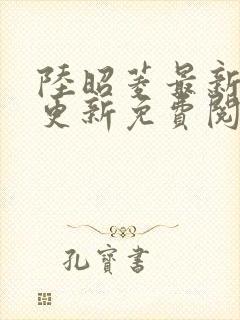 陸昭菱最新
更新免費閱
孔寶書